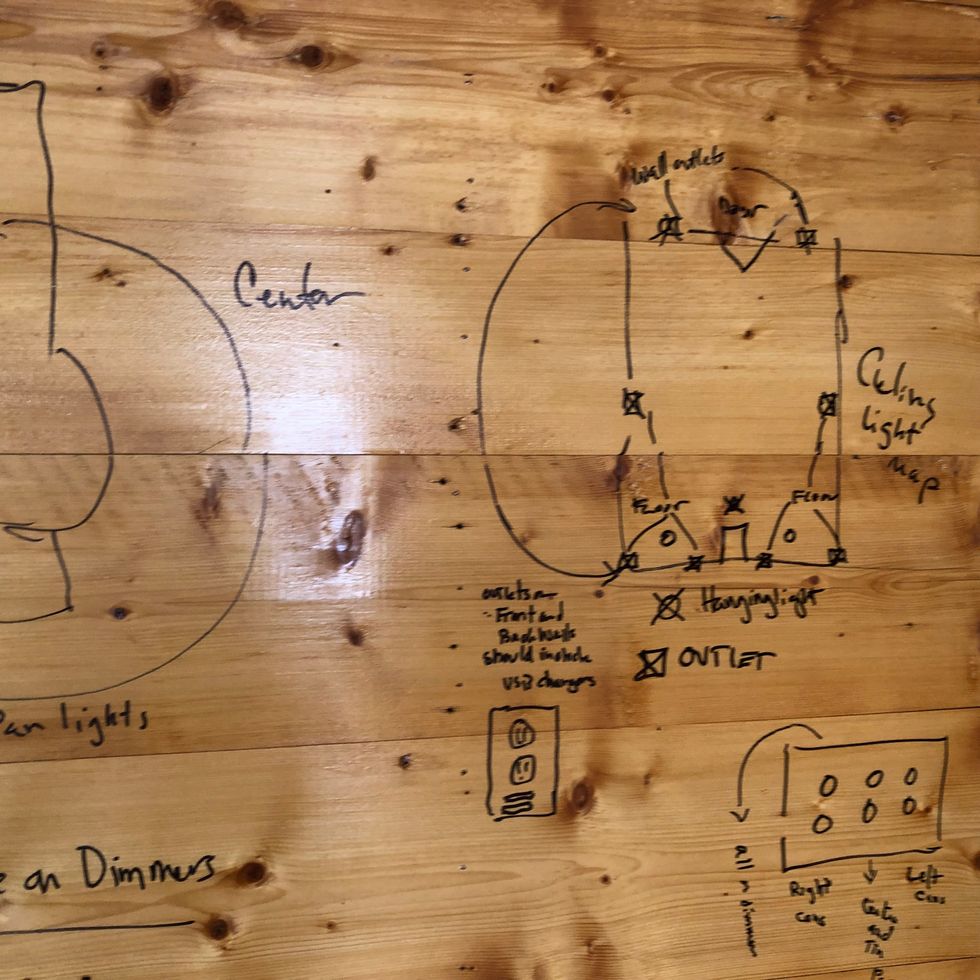 Wall outlets
Door
Center
Ceiling
light
map
Floor
Floor
outlets on
Front and
Back Walls
should include
USB chargers
Hanging light
OUTLET
Pan lights
on Dimmers
all
Right
Cans
Left
Cans